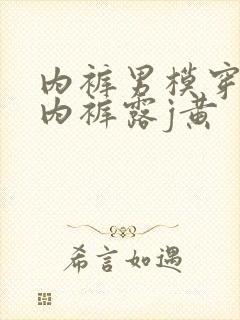 内裤男模穿
内裤露j黄
希言如遇